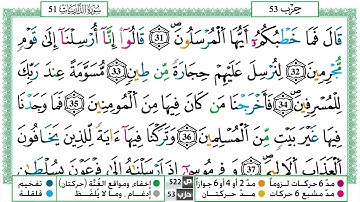 سورة الذاريات 51
حزب 53
قَالَ فَمَا خَطْبُكُمُۥٓ أَيُّهَا ٱلْمُرْسَلُونَۖ 31 قَالُوٓاْ إِنَّآ أُرْسِلْنَآ إِلَىٰ قَوْمٖ
مُّجْرِمِينَ 32 لِنُرْسِلَ عَلَيْهِمْ حِجَارَةٗ مِّن طِينٖ 33 مُّسَوَّمَةً عِندَ رَبِّكَ
لِلْمُسْرِفِينَۖ 34 فَأَخْرَجْنَا مَن كَانَ فِيهَا مِنَ ٱلْمُؤْمِنِينَ 35 فَمَا وَجَدْنَا
فِيهَا غَيْرَ بَيْتٖ مِّنَ ٱلْمُسْلِمِينَۖ 36 وَتَرَكْنَا فِيهَآ ءَايَةٗ لِّلذِينَ يَخَافُونَ
ٱلْعَذَابَ ٱلْأَلِيمَۖ 37 وَفِي مُوسَىٰٓ إِذْ أَرْسَلْنَٰهُ إِلَىٰ فِرْعَوْنَ بِسُلْطَٰنٖ
مدّ 6 حركات لزوماً مدّ 2 أو 4 أو 6 جوازاً ص 522 إخفاء، ومواقع الغُنَّة (حركتان) تفخيم
مدّ مشبع 6 حركات مدّ حركتان حزب 53 إدغام، وما لا يُلفظ قلقلة